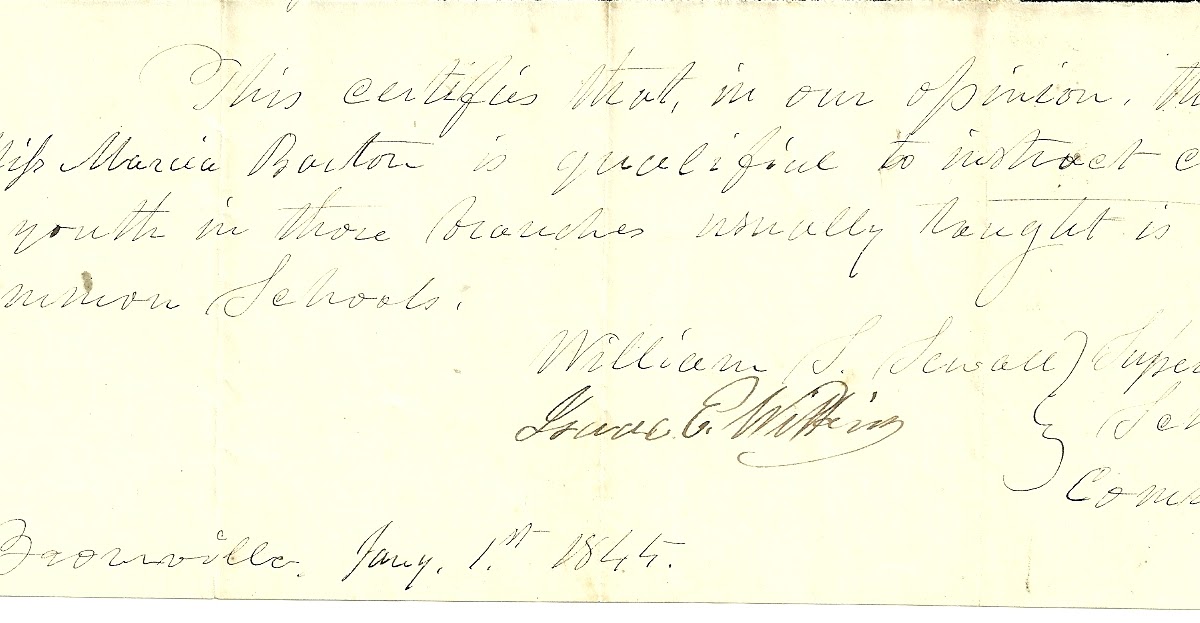 This certifies that, in our opinion, th
Miss Marcia Barton is qualified to instruct
youth in those branches usually taught is
mmon Schools.
William S. Sewall } Super
Isaac E. Wilkins
Com
Brownville, Jany. 1.st 1845.